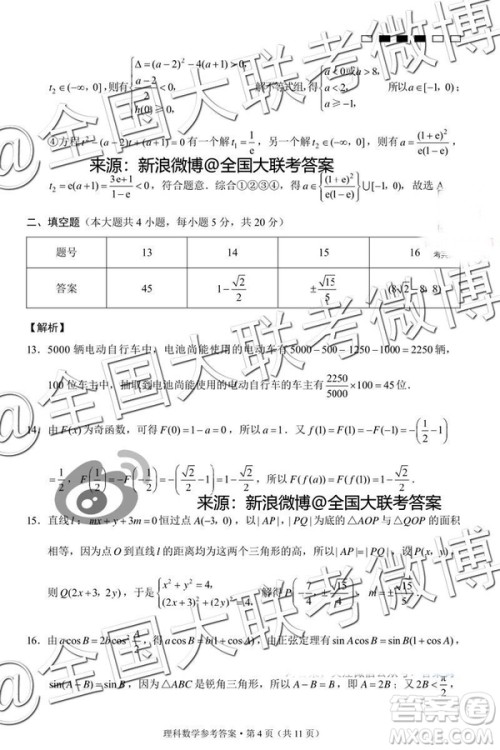 t₂∈(-∞, 0], 则有 { Δ=(a-2)²-4(a+1)>0, (a-2)/2<0, h(0)≥0, 解不等式组, 得 { a<0或a>8, a<2, a≥-1, 所以a∈[-1, 0);
④方程t²-(a-2)t+(a+1)=0有一个解t₁=1/e, 另一个解t₂∈(-∞, 0], 则有a=(1+e)²/e(1-e),
来源:新浪微博@全国大联考答案
t₂=e(a+1)=(3e+1)/(1-e)<0, 符合题意. 综合①②③④, 得a∈{(1+e)²/e(1-e)}∪[-1, 0), 故选A
二、填空题(本大题共4小题, 每小题5分, 共20分)
题号 13 14 15 16
答案 45 1-√2/2 ±√15/5 (8√2-8, 8)
【解析】
13. 5000辆电动自行车中, 电池尚能使用的电动车有5000-500-1250-1000=2250辆,
100位车主中, 抽取到电池尚能使用的车主有2250/5000×100=45位.
14. 由F(x)为奇函数, 可得F(0)=1-a=0, 所以a=1. 又f(1)=F(1)=-F(-1)=-(1/2-1)
=1/2, F(1/2)=-F(-1/2)=-(√2/2-1)=1-√2/2, 所以F(f(a))=F(f(1))=1-√2/2.
来源:新浪微博@全国大联考答案
15. 直线l: mx+y+3m=0恒过点A(-3, 0), 以|AP|, |PQ|为底的△AOP与△OPQ的面积
相等, 因为点O到直线l的距离即为这两个三角形的高, 所以|AP|=|PQ|, 设P(x, y),
则Q(2x+3, 2y), 于是 { x²+y²=4, (2x+3)²+(2y)²=4, 解得P(-7/4, ±√15/4), m=±√15/5.
16. 由acosB=2bcos²A/2, 得acosB=b(1+cosA), 由正弦定理有sinAcosB=sinB(1+cosA),
sin(A-B)=sinB, 因为△ABC是锐角三角形, 所以A-B=B, 即A=2B; 又2B<π/2,
理科数学参考答案·第4页(共11页)
@全国大联考微博
@全国大联考微博
@全国大联考微博
答案圈
MXQE.COM